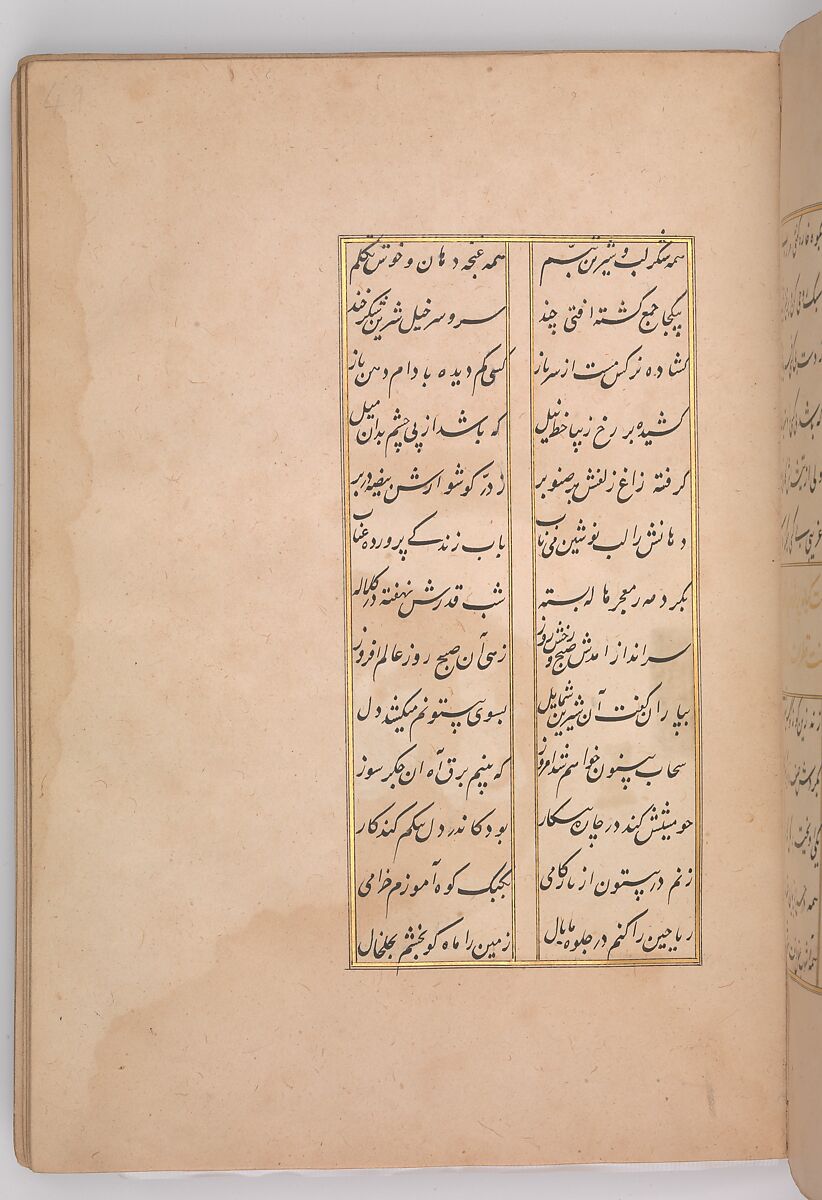 همه شکر لب و شیرین تبسم همه غنچه دهان و خوش تکلم
یکجا جمع گشته افتی چند سرو سر خیل شیرین شکر خند
کشاده نرکس مست از سر ناز کسی کم دیده بادام دهن باز
کشیده بر رخ زیبا خط نیل که باشد از پی چشم بدان میل
گرفته زاغ زلفش بر صنوبر ز در گوشوارش بیضه در بر
دهانش را لب نوشین می ناب باب زندگی پرورده عناب
بکرد مه ز معجر هاله بسته شب قدرش نهفته در کلاله
سرانداز امدش صبح و رخش روز زهی آن صبح روز عالم افروز
بیاران گفت آن شیرین شمایل بسوی بیستونم میکشد دل
سحاب بیستون خواهم شد امروز که بینم برق آه ان جگر سوز
کند در جان سکار بود کاندر دل کند کار
زنم در بیستون از ناز کامی بکبک کوه آموزم خرامی
ریاحین را کنم در جلوه پامال زمین را ماه نو بخشم بخلخال